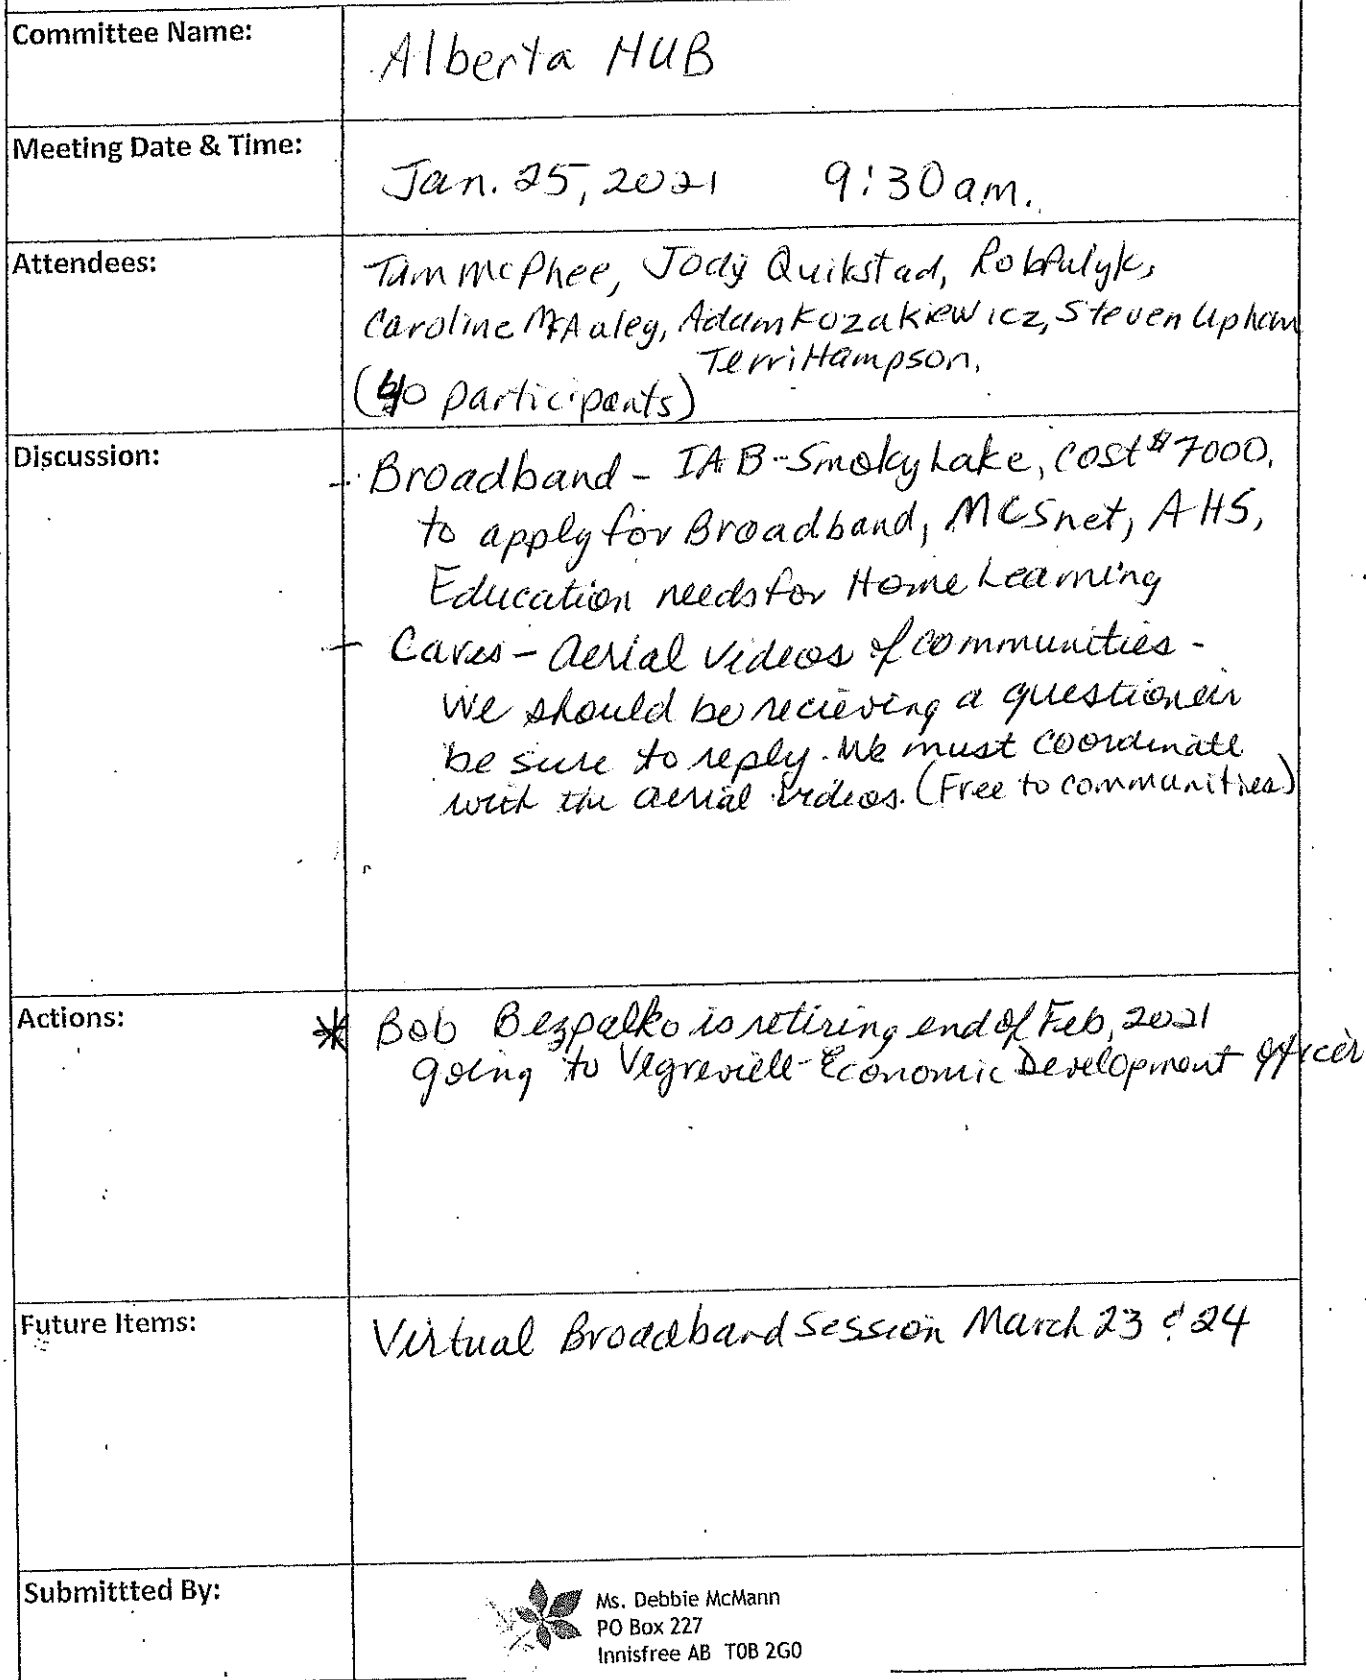 Committee Name:
Alberta HUB
Meeting Date & Time:
Jan. 25, 2021 9:30 am.
Attendees:
Tim McPhee, Jody Quikstad, Rob Pulyk,
Caroline McAuley, Adam Kozakiewicz, Steven Upham
Terri Hampson.
(40 participants)
Discussion:
- Broadband - IAB - Smoky Lake, cost $7000.
to apply for Broadband, MCSnet, AHS,
Education needs for Home Learning
- Cares - Aerial videos of communities -
We should be recieving a questioneir
be sure to reply. We must coordinate
with the aerial videos. (Free to communities)
Actions:
* Bob Bezpalko is retiring end of Feb, 2021
going to Vegreville - Economic Development Officer
Future Items:
Virtual Broadband Session March 23 & 24
Submittted By:
Ms. Debbie McMann
PO Box 227
Innisfree AB T0B 2G0